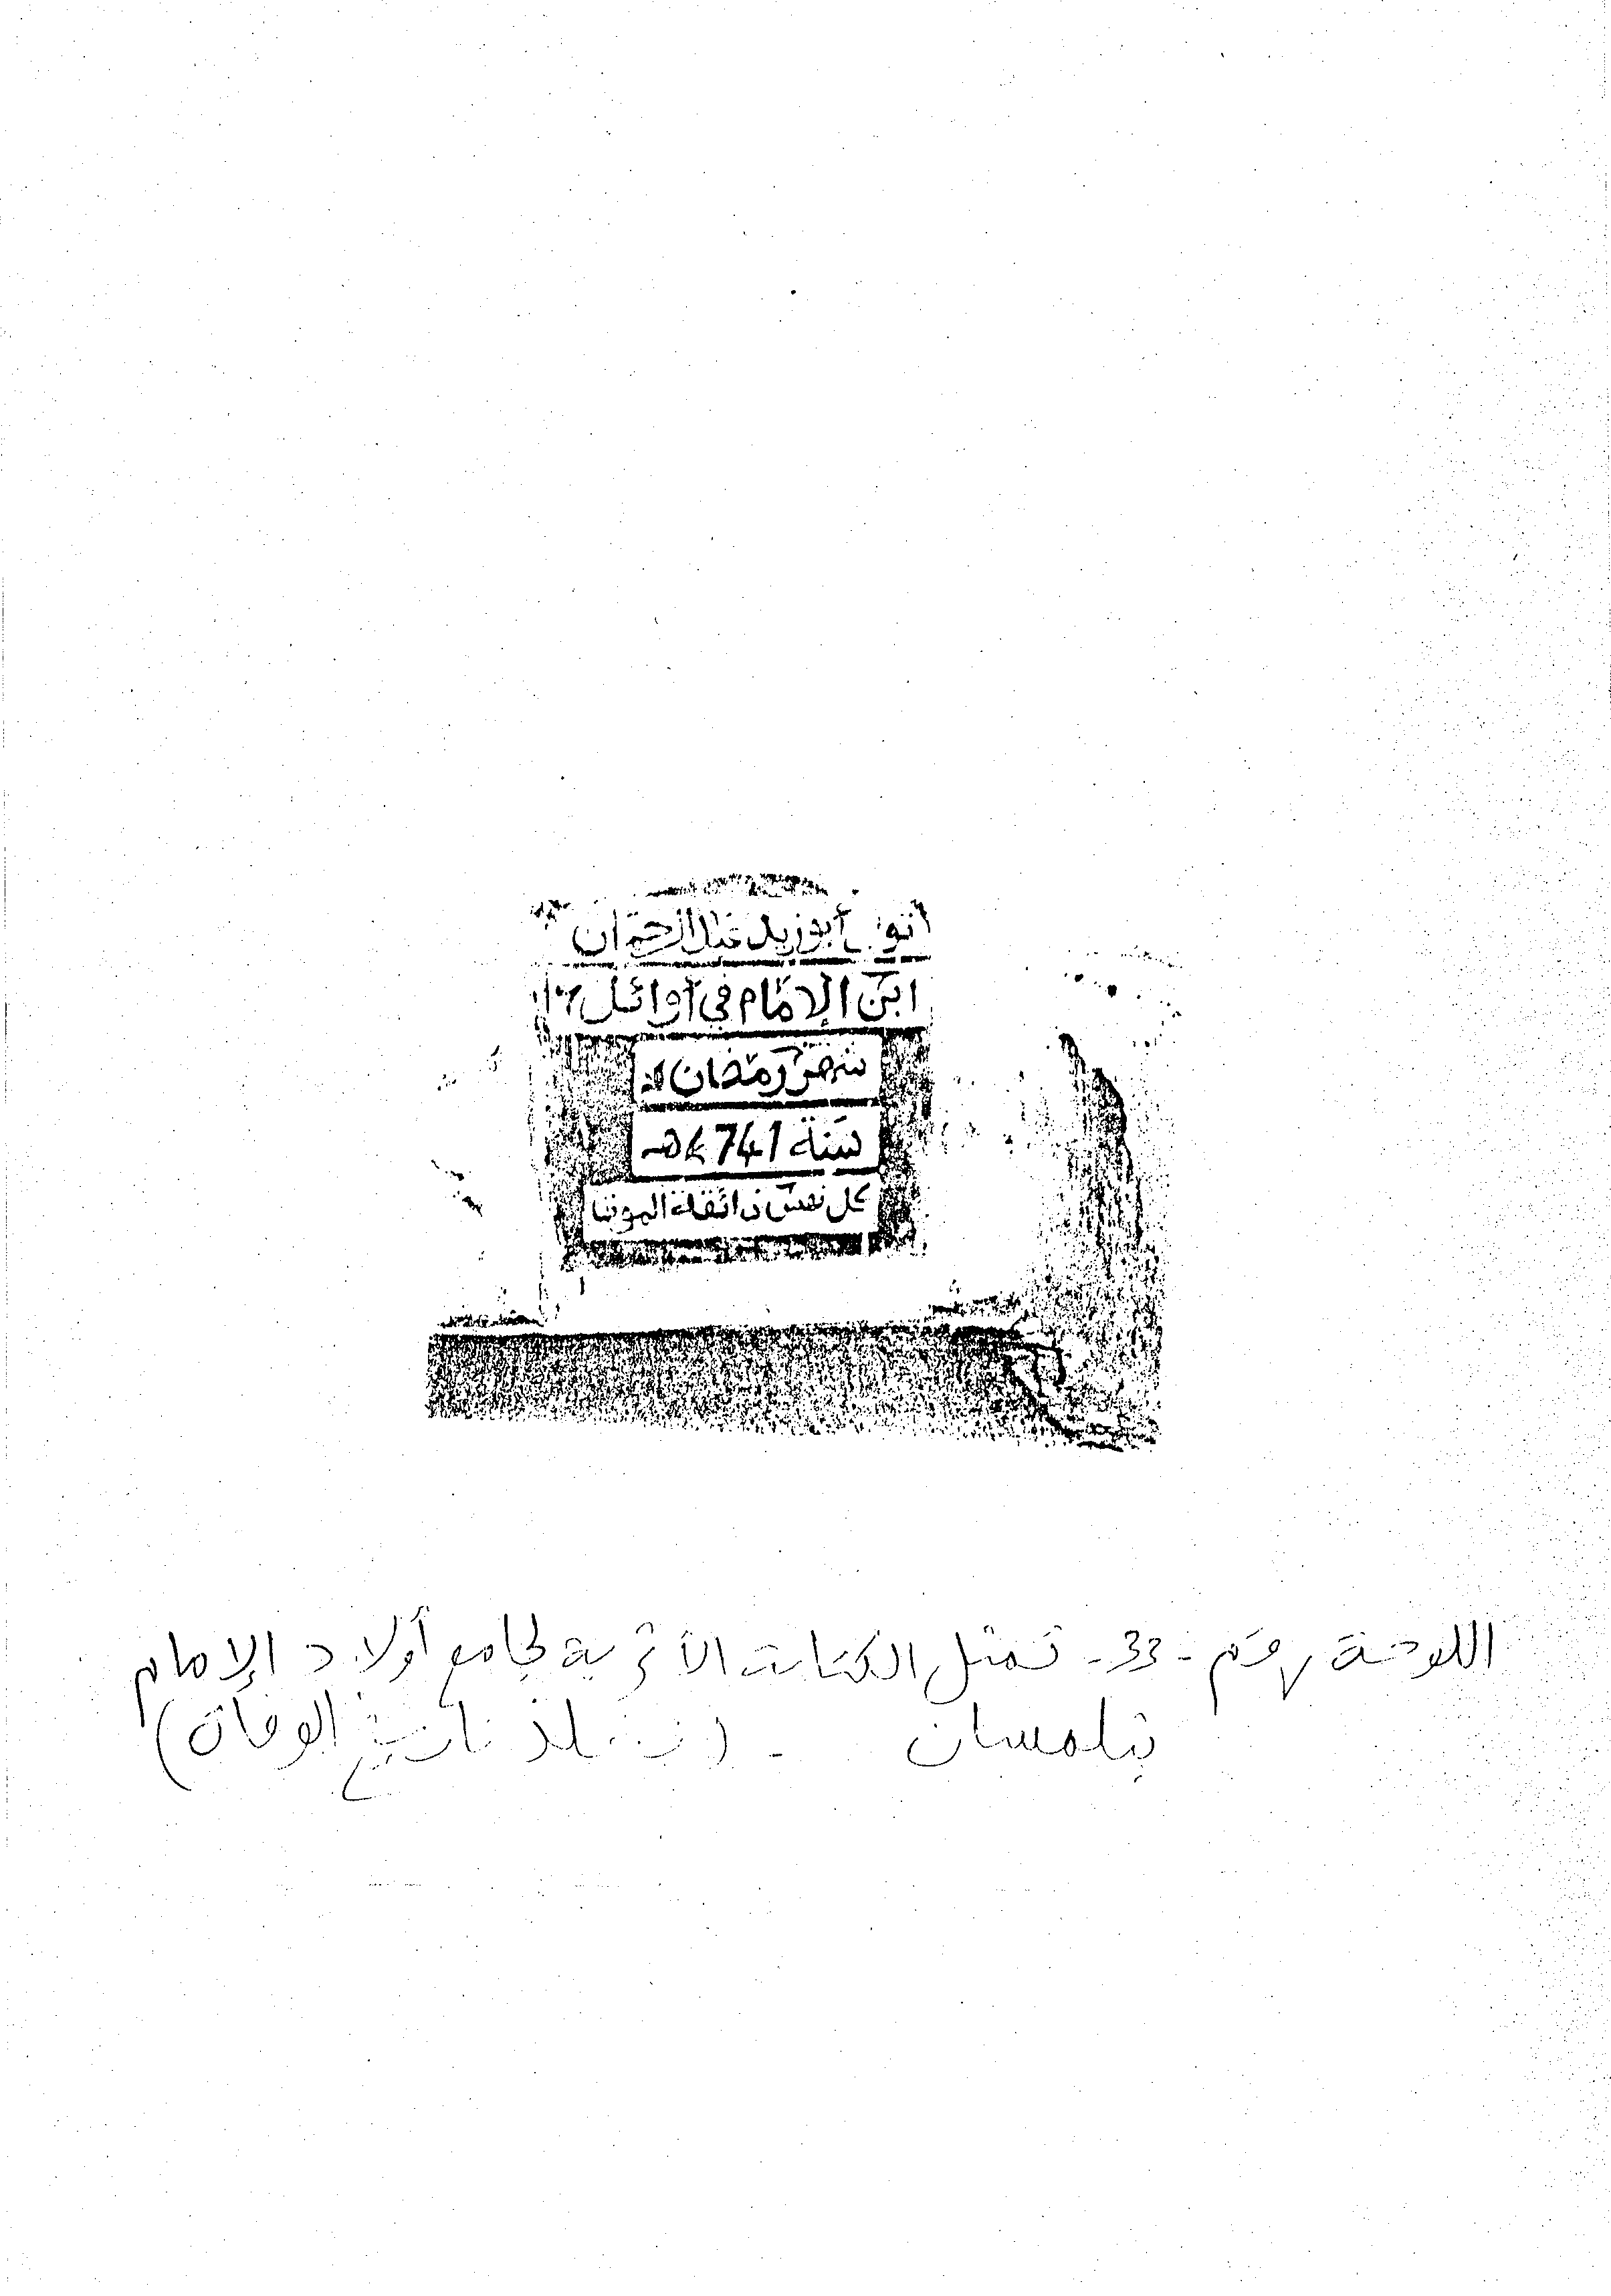 أبو زيد عبد الرحمان
ابن الإمام في أوائل
شهر رمضان
سنة 741 هـ
كل نفس ذائقة الموت
اللوحة رقم - 33 - تمثل الكتابة الأثرية لجامع أولاد الإمام
بتلمسان - ( تاريخ الوفاة )